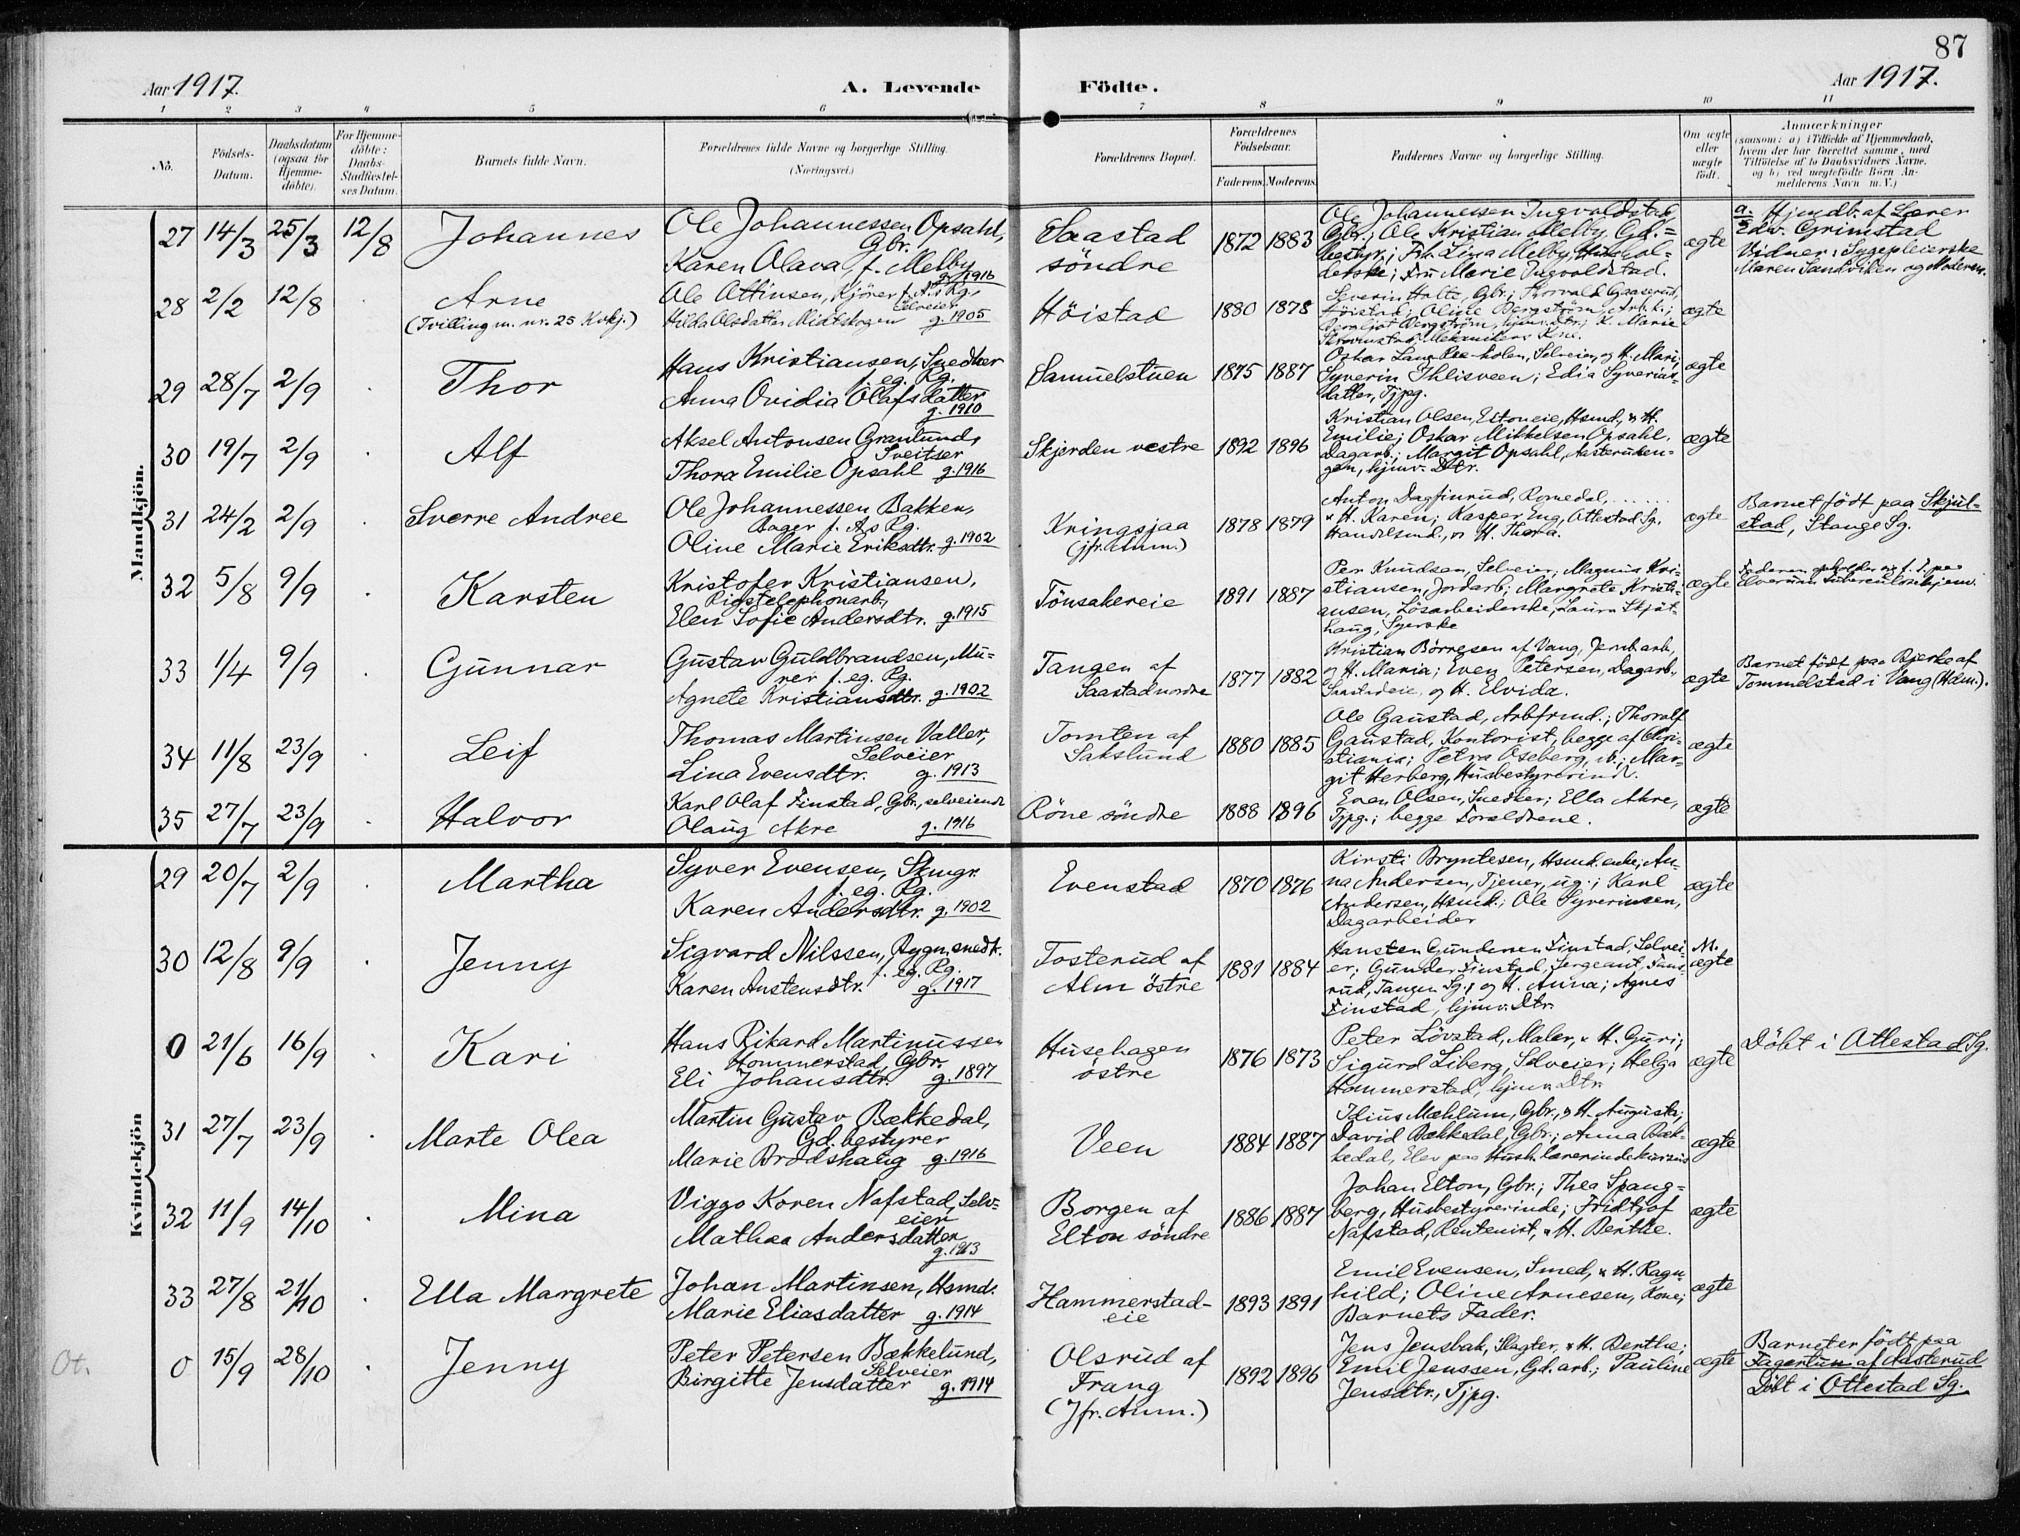 87
Aar 1917. A. Levende Födte. Aar 1917.
1 2 3 4 5 6 7 8 9 10 11
No.
Födsels-
Datum.
Daabsdatum
(ogsaa for
Hjemme-
döbte).
For Hjemme-
döbte:
Daabs-
Stadfæstel-
ses Datum.
Barnets fulde Navn.
Forældrenes fulde Navne og borgerlige Stilling.
(Næringsvei.)
Forældrenes Bopæl.
Forældrenes
Födselsaar.
Faderens. Moderens.
Faddernes Navne og borgerlige Stilling.
Om ægte
eller
uægte
født.
Anmærkninger
(saasom: a) i Tilfælde af Hjemmedaab,
hvem der har forrettet samme, med
Tilföielse af to Daabsvidners Navne,
og b) ved uægtefödte Börn An-
melderens Navn m. V.)
Mandkjön.
27 14/3 25/3 12/8 Johannes
Ole Johannessen Opsahl,
Gbr.
Karen Olava, f. Melby
g. 1916
Saastad
söndre
1872 1883
Ole Johannessen Ingvoldstad,
Gbr.; Ole Kristian Melby, Gd.=
bestyr.; Frk. Lina Melby, Hushol-
derske; Fru Marie Ingvoldstad.
ægte
a. Hjmdb. af Lærer
Edv. Grimstad
Vidner: Sygepleierske
Maren Sandviken og Moderen.
28 2/2 12/8 Arne
(Tvilling m. nr. 25 Kvkj.)
Ole Attinsen, Kjörer f. A.s Rg.,
Selveier
Hilda Olsdatter Midtskogen g. 1905
Höistad
1880 1878
Severin Holte, Gbr.; Thorvald Gaaserud,
Höistad; Oline Bergström, Arb.k.;
Bergljot Bergström, hjmv. Dtr.; K. Marie
ægte
29 28/7 2/9 Thor
Hans Kristiansen, Snedker
f. eg. Rg.
Anna Ovidia Olafsdatter
g. 1910
Samuelstuen
1875 1887
Selveier, og H. Mari;
Syverin Ihlisveen; Edia Syverins-
datter, Tjpg.
ægte
30 19/7 2/9 Alf
Aksel Antonsen Granlund,
Sveitser
Thora Emilie Opsahl g. 1916
Skjerden vestre
1892 1896
Kristian Olsen, Eltoneie, Hsmd, & H.
Emilie; Oskar Mikkelsen Opsahl,
Dagarb.; Margit Opsahl, Aasterudен-
gen, hjmv. Dtr.
ægte
31 24/2 2/9 Sverre Andree
Ole Johannessen Bakken,
Bager f. A.s Rg.
Oline Marie Eriksdtr. g. 1902
Kringsjaa
(jfr. Anm.)
1878 1879
Anton Dagfinrud, Romedal,
& H. Karen; Kasper Eng, Ottestad Sg.
Handelsmd., & H. Thora.
ægte
Barnet födt paa Skjul-
stad, Stange Sg.
32 5/8 9/9 Karsten
Kristofer Kristiansen,
Rigstelephonarb.,
Elen Sofie Andersdtr. g. 1915
Tönsakereie
1891 1887
Per Knudsen, Selveier; Magnus Kri-
stiansen, Jordarb.; Margrete Kristi-
ansen, Lösarbeiderske; Laura Skjöt-
haug, Syerske
ægte
Faderen opholder sig f. T. paa
Elverum Tuberculosehjem.
33 1/4 9/9 Gunnar
Gustav Guldbrandsen, Mu-
rer f. eg. Rg.
Agnete Kristiansdtr. g. 1902
Tangen af
Saastad nordre
1877 1882
Kristian Börresen af Vang, Jernb.arb.,
og H. Maria; Even Petersen, Dagarb.,
og H. Elvida.
ægte
Barnet födt paa Bjerke af
Tommelstad i Vang (Hdm.).
34 11/8 23/9 Leif
Thomas Martinsen Valler,
Selveier
Lina Evensdtr. g. 1913
Tomten af
Sakslund
1880 1885
Ole Gaustad, Arbfmd.; Thoralf
Gaustad, Kontorist, begge af Chri-
stiania; Petra Oseberg, ib.; Mar-
git Herberg, Husbestyrerinde.
ægte
35 27/7 23/9 Halvor
Karl Olaf Finstad, Gbr., selveiende
Olaug Akre g. 1916
Röne söndre
1888 1896
Even Olsen, Snedker; Ella Akre,
Tjpg.; begge Forældrene.
ægte
Kvindekjön
29 20/7 2/9 Martha
Syver Evensen, Skmgr.
f. eg. Rg.
Karen Andersdtr. g. 1902
Evenstad
1870 1876
Kirsti Bryntesen, Hsmd.enke; An-
na Andersen, Tjener, ug.; Karl
Andersen, Hsmd.; Ole Syverinsen,
Dagarbeider
ægte
30 12/8 9/9 Jenny
Sigvard Nilssen, Bygn.snedk.
f. eg. Rg.
Karen Anstensdtr. g. 1917
Tosterud af
Alm östre
1881 1884
Hansten Gundersen Finstad, Selvei-
er; Gunder Finstad, Sergeant, Fans-
rud, Tangen Sg.; og H. Anna; Agnes
Finstad, hjmv. Dtr.
ægte
0 21/6 16/9 Kari
Hans Rikard Martinussen
Hommerstad, Gbr.
Eli Johansdtr. g. 1897
Husehagen
östre
1876 1873
Peter Lövstad, Maler, & H. Guri;
Sigurd Liberg, Selveier; Helga
Hommerstad, hjmv. Dtr.
ægte
Döbt i Ottestad Sg.
31 27/7 23/9 Marte Olea
Martin Gustav Bækkedal,
Gd.bestyrer
Marie Brodshaug g. 1916
Veen
1884 1887
Idius Mæhlum, Gbr., & H. Augusta;
David Bækkedal, Gbr.; Anna Bæk-
kedal, Elev paa Hush.lærerindekursus
ægte
32 11/9 14/10 Mina
Viggo Koren Nafstad, Selv-
eier
Mathea Andersdatter
g. 1913
Borgen af
Elton söndre
1886 1887
Johan Elton, Gbr.; Thea Spang-
berg, Husbestyrerinde; Fridtjof
Nafstad, Rentenist, & H. Berthe.
ægte
33 27/8 21/10 Ella Margrete
Johan Martinsen, Hsmd.
Marie Eliasdatter g. 1914
Hammerstad-
eie
1893 1891
Emil Evensen, Smed, & H. Ragn-
hild; Oline Arnesen, Kone;
Barnets Fader.
ægte
Ot. 0 15/9 28/10 Jenny
Peter Petersen Bækkelund,
Selveier
Birgitte Jensdatter g. 1914
Olsrud af
Frang
(Jfr. Anm.)
1892 1896
Jens Jensbak, Slagter, & H. Berthe;
Emil Jenssen, Gd.arb.; Pauline
Jensdtr., Tjpg.
ægte
Barnet er födt paa
Fagerlun af Aasterud
Döbt i Ottestad Sg.